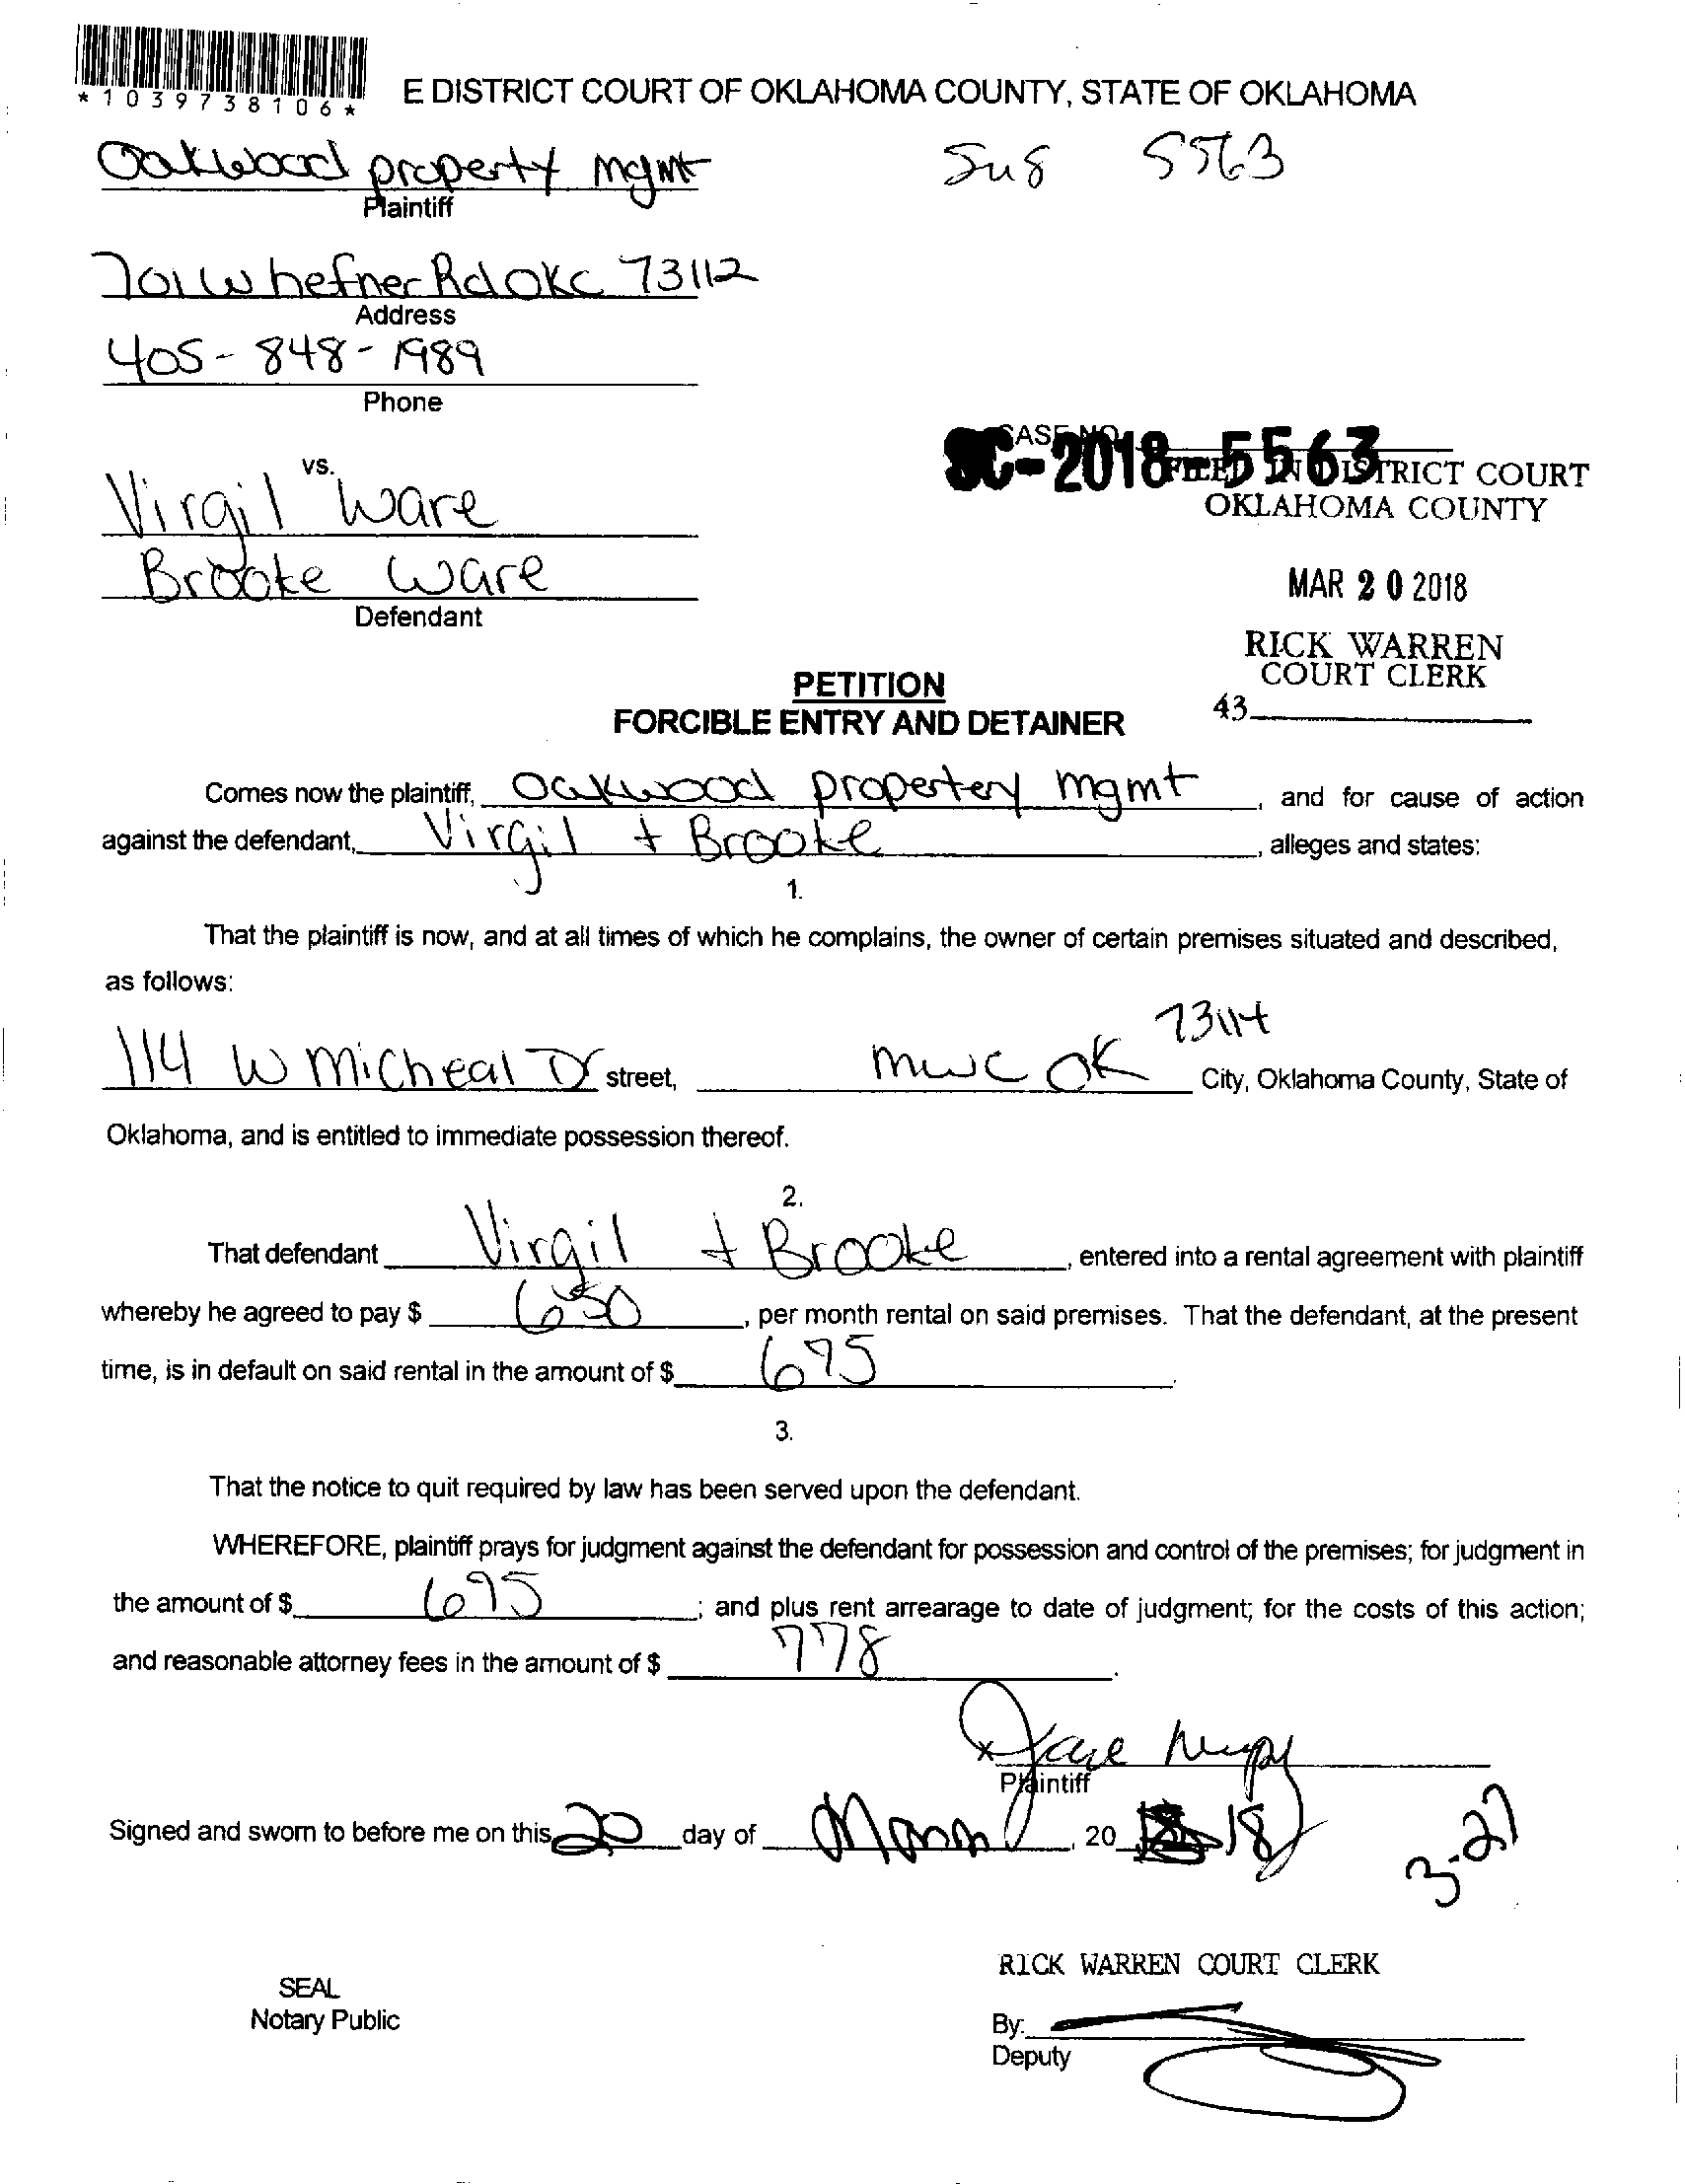 *1039738106*
E DISTRICT COURT OF OKLAHOMA COUNTY, STATE OF OKLAHOMA
Oakwood property mgmt
5563
Plaintiff
701 W hefner Rd OKC 73112
Address
405-848-1989
Phone
CASE NO.
SC-2018-5563
FILED IN DISTRICT COURT
OKLAHOMA COUNTY
vs.
Virgil Ware
Brooke Ware
Defendant
MAR 20 2018
RICK WARREN
COURT CLERK
43
PETITION
FORCIBLE ENTRY AND DETAINER
Comes now the plaintiff, Oakwood propertery mgmt, and for cause of action
against the defendant, Virgil + Brooke, alleges and states:
1.
That the plaintiff is now, and at all times of which he complains, the owner of certain premises situated and described,
as follows:
73114
114 W Micheal Dr street, mwc OK City, Oklahoma County, State of
Oklahoma, and is entitled to immediate possession thereof.
2.
That defendant Virgil + Brooke, entered into a rental agreement with plaintiff
whereby he agreed to pay $ 650, per month rental on said premises. That the defendant, at the present
time, is in default on said rental in the amount of $ 695.
3.
That the notice to quit required by law has been served upon the defendant.
WHEREFORE, plaintiff prays for judgment against the defendant for possession and control of the premises; for judgment in
the amount of $ 695; and plus rent arrearage to date of judgment; for the costs of this action;
and reasonable attorney fees in the amount of $ 778.
x
Plaintiff
Signed and sworn to before me on this 20 day of, 20 18
3-27
RICK WARREN COURT CLERK
SEAL
Notary Public
By:
Deputy